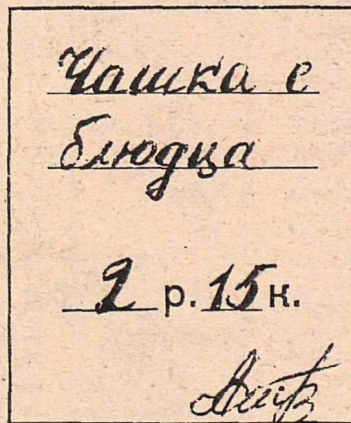 Чашка с
блюдца
2 р. 15 к.